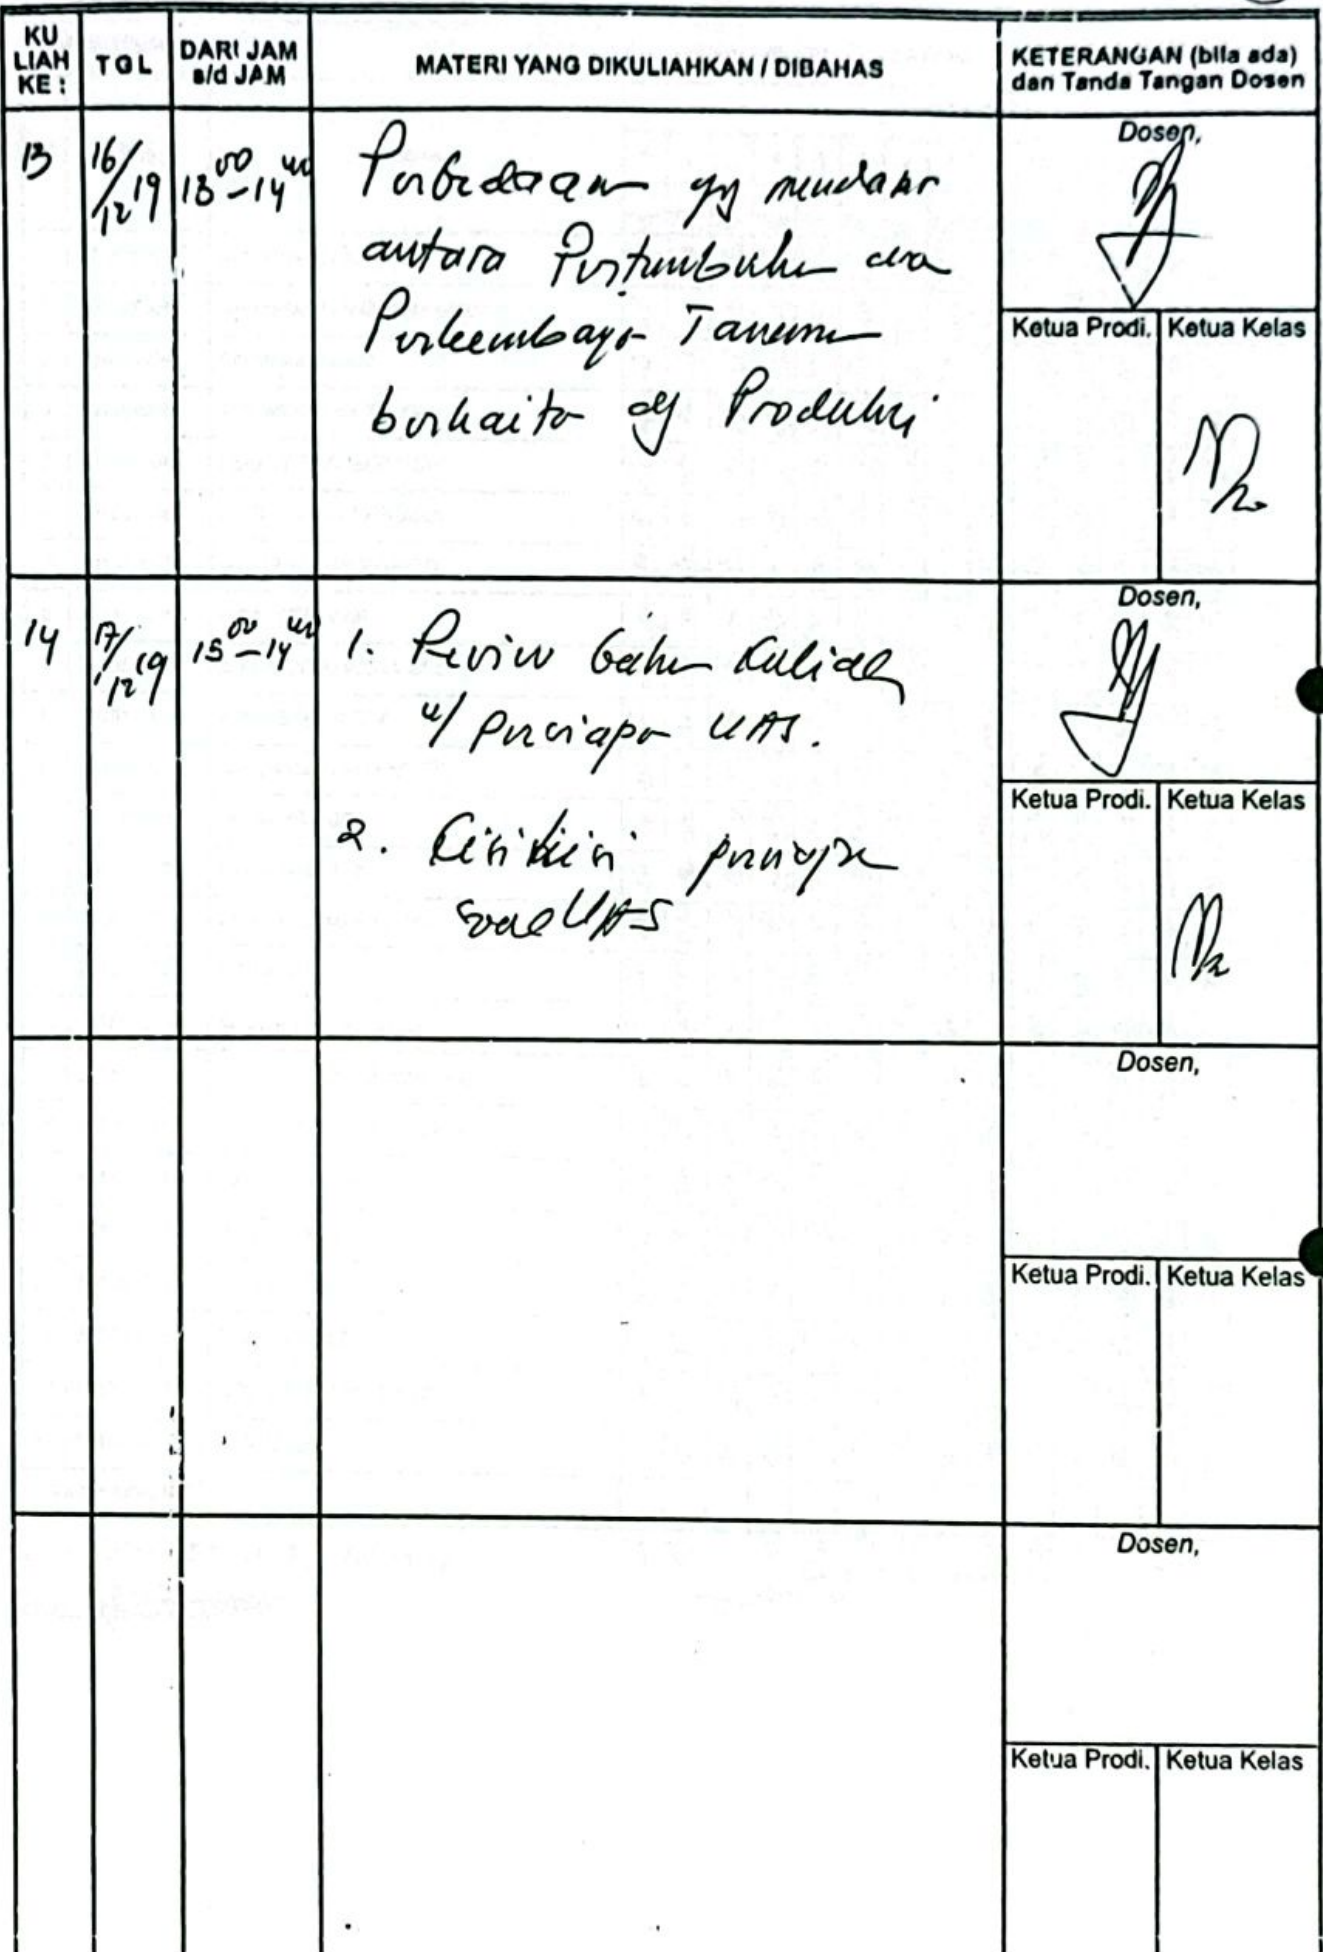 KU LIAH KE :
TGL
DARI JAM s/d JAM
MATERI YANG DIKULIAHKAN / DIBAHAS
KETERANGAN (bila ada) dan Tanda Tangan Dosen
13
16/12 19
13 00 - 14 40
Perbedaan yg mendasar
antara Pertumbuhan dan
Perkembangan Tanaman
berkaitan dg Produksi
Dosen,
Ketua Prodi.
Ketua Kelas
14
17/12 19
- 14 40
1. Review bahan kuliah
u/ persiapan UAS.
2. persiapan
soal UAS
Dosen,
Ketua Prodi.
Ketua Kelas
Dosen,
Ketua Prodi.
Ketua Kelas
Dosen,
Ketua Prodi.
Ketua Kelas